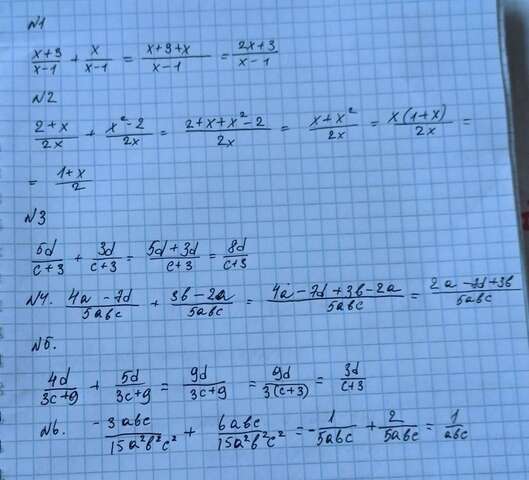 №1
(x+3)/(x-1) + x/(x-1) = (x+3+x)/(x-1) = (2x+3)/(x-1)
№2
(2+x)/2x + (x²-2)/2x = (2+x+x²-2)/2x = (x+x²)/2x = x(1+x)/2x =
= (1+x)/2
№3
5d/(c+3) + 3d/(c+3) = (5d+3d)/(c+3) = 8d/(c+3)
№4. (4a-7d)/5abc + (3b-2a)/5abc = (4a-7d+3b-2a)/5abc = (2a-7d+3b)/5abc
№5.
4d/(3c+9) + 5d/(3c+9) = 9d/(3c+9) = 9d/3(c+3) = 3d/(c+3)
№6. -3abc/15a²b²c² + 6abc/15a²b²c² = -1/5abc + 2/5abc = 1/abc